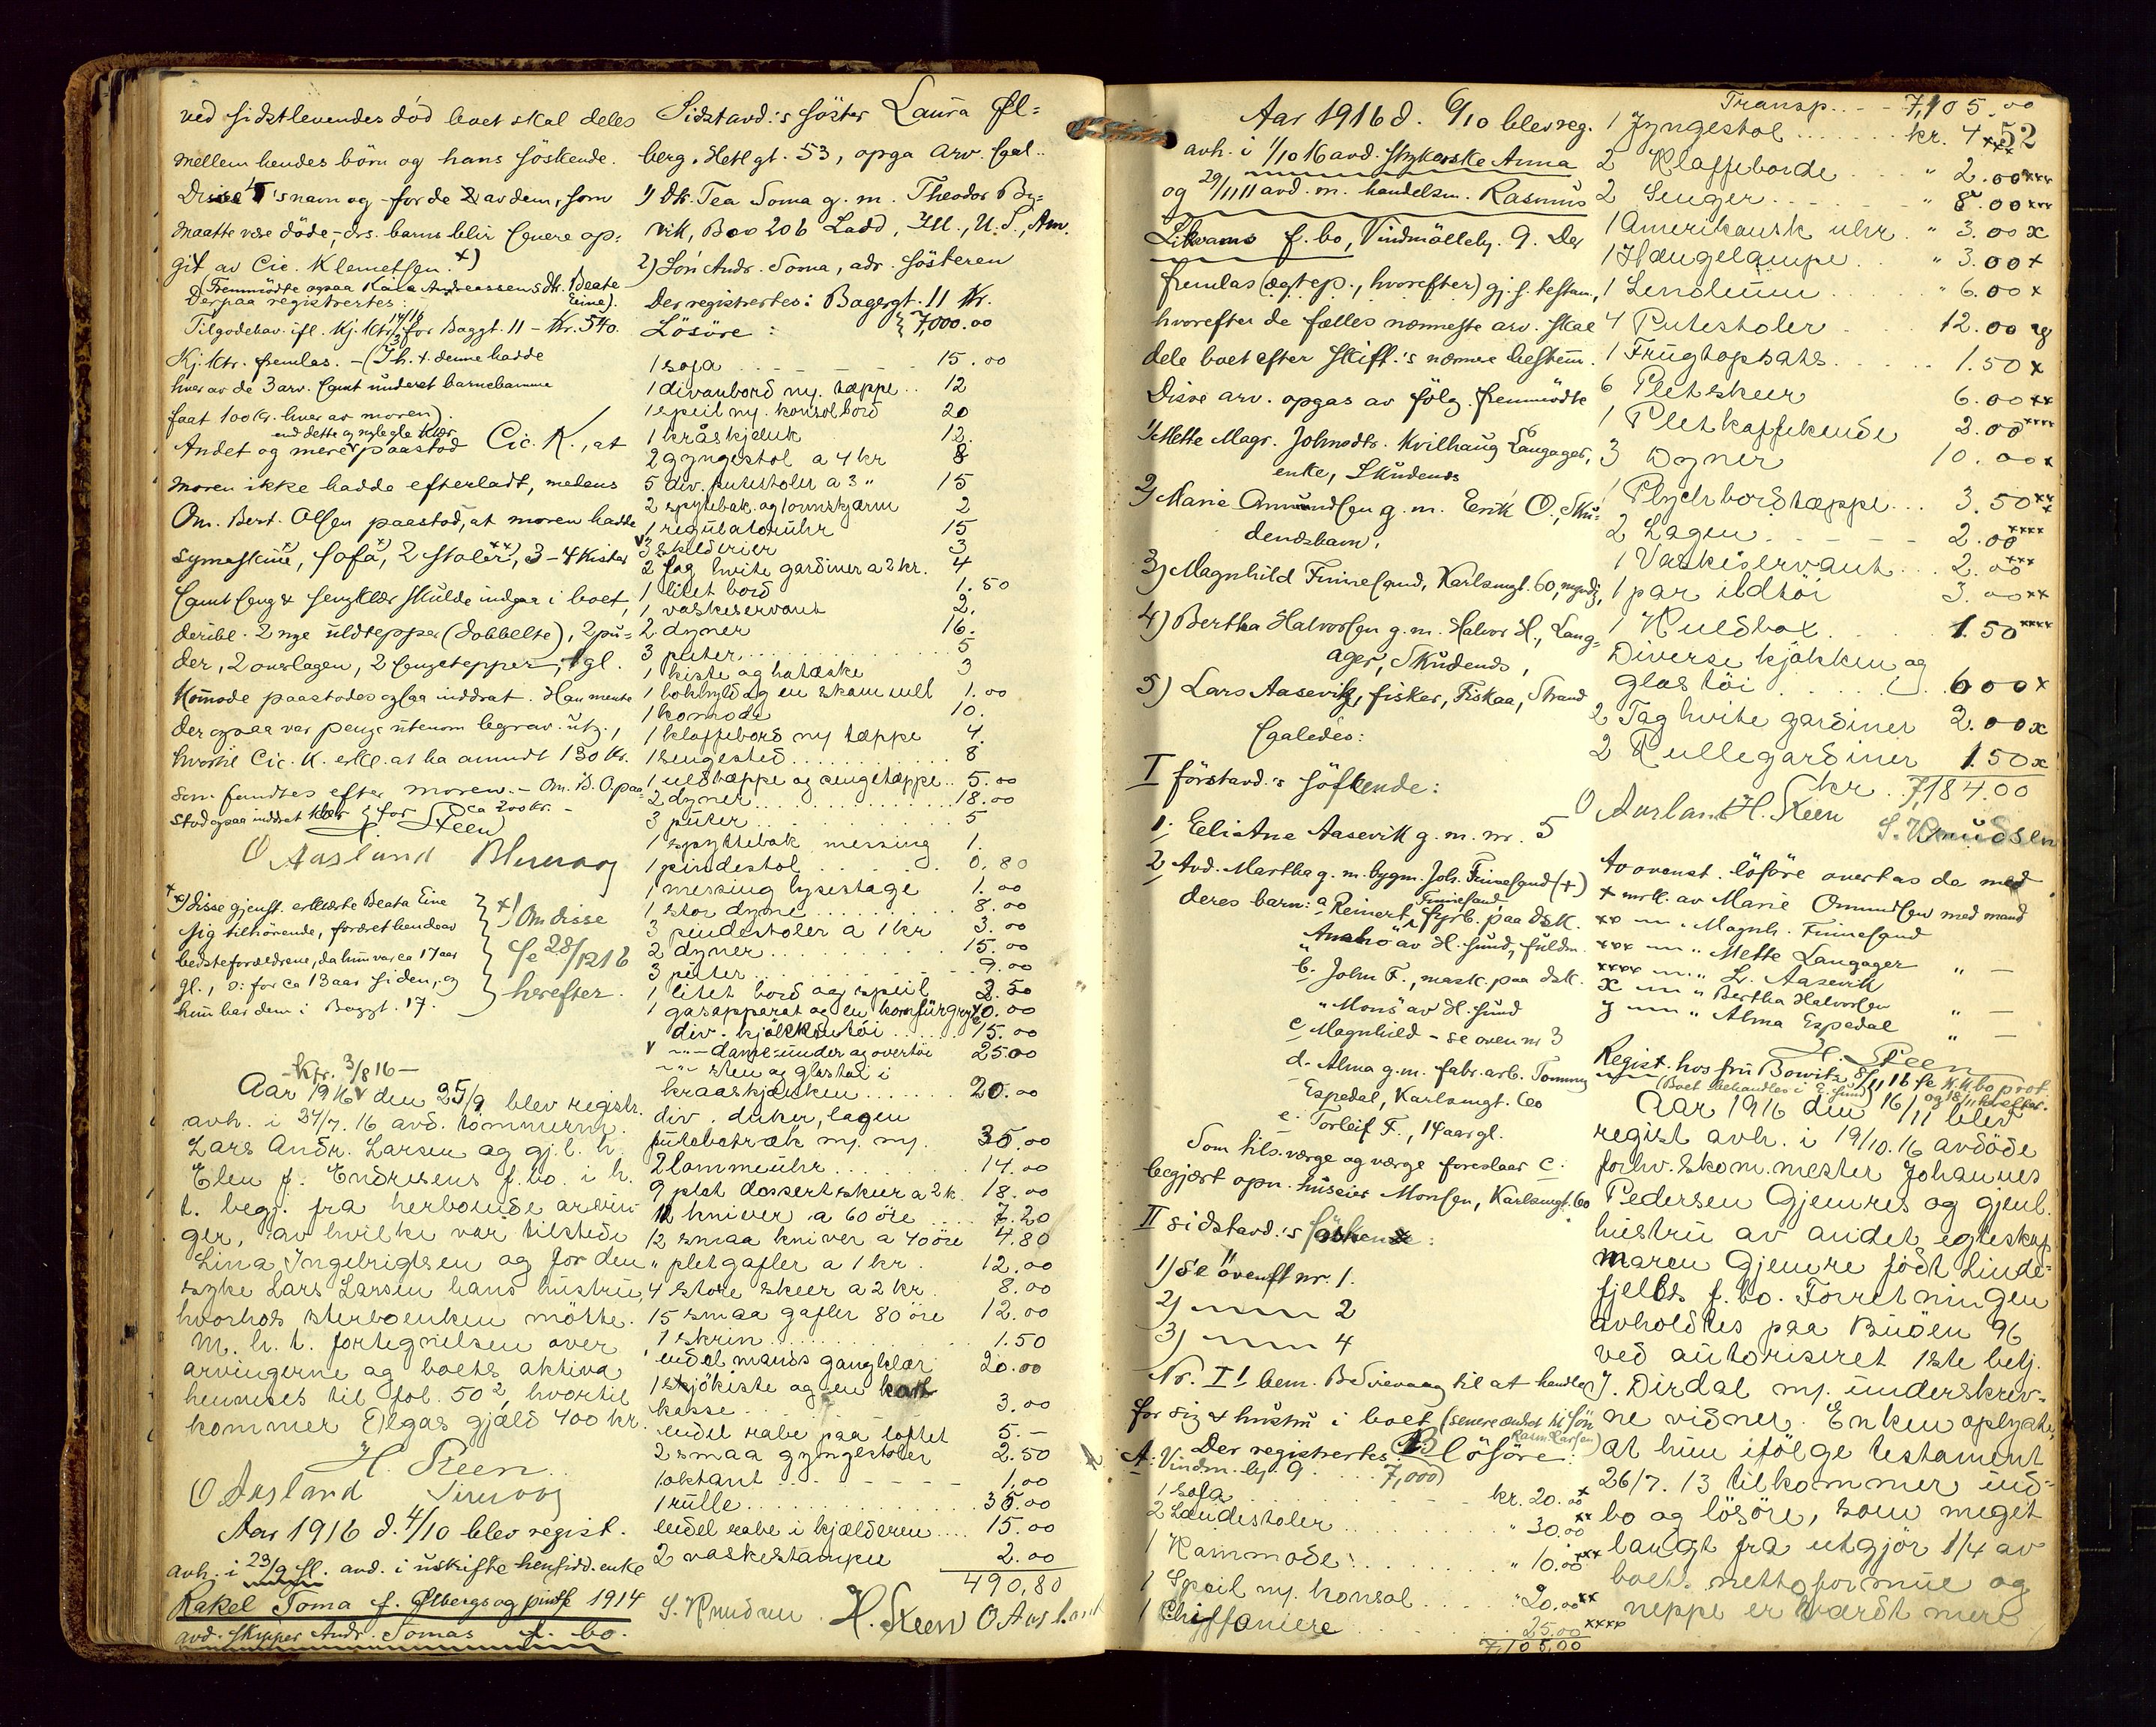 ved sidstlevendes död boet skal deles
mellem hendes börn og hans söskende.
Disse's navn og for de 2 av dem, som
maatte være döde, drs. barns blir senere op-
git av Cic. Klemetsen. +)
(Fremmödte ogsaa Kaia Andreassens dtr. Beate
Eine).
Derpaa registrertes:
Tilgodehav. ifl. Kj. ktr. 14/16 for Baggt. 11 - Kr. 540.
Kj. Ktr. fremlas. - (Ifh. t. denne hadde
hver av de 3 arv. samt underet barnebarnne
faat 100 Kr. hver av moren).
end dette og nylegle Klær
Andet og mere paastod Cic. K., at
moren ikke hadde efterladt, medens
Om. Bert. Olsen paastod, at moren hadde
symaskine, sofa, 2 stoler, 3-4 kister
samt seng & sengklær skulde indgaa i boet,
deribl. 2 nye uldtepper (dobbelte), 2 pu-
der, 2 overlagen, 2 sengetepper, 1 gl.
Komode paastodes ogsaa inddrat. Han mente
der ogsaa var penge utenom begrav. utg.,
hvortil Cic. K. erkl. at ha anvendt 130 Kr.
som fandtes efter moren. - Om. B. O. paa-
stod ogsaa inddrat klær for ca 200 kr. -
H. Steen
O Aasland
+x) Disse gjenst. erklærte Beata Eine
sig tilhörende, foræret hende av
bedsteforældrene, da hun var ca 17 aar
gl., o: for ca 13 aar siden, og
hun har dem i Baggt. 17.
+) Om disse
se 28/12 16
herefter.
- Kfr. 3/8 16 -
Aar 1916 den 25/9 blev registr.
avh. i 27/7. 16 avd. tömmerm.
Lars Andr. Larsen og gj. l. h.
Elen f. Endresens f. bo. i h.
t. begj. fra herboende arvin-
ger, av hvilke var tilstede
Lina Ingebrigtsen og for den
syke Lars Larsen hans hustru,
hvorhos sterboenken mötte.
M. h. t. fortegnelsen over
arvingerne og boets aktiva
henvises til fol. 50², hvortil
kommer Olgas gjæld 400 kr.
H. Steen
O Aasland
Aar 1916 d. 4/10 blev regist.
avh. i 23/9 fl. avd. i uskifte hensidd. enke
Rakel Soma f. Ølbergs og 1914
avd. skipper Andr. Somas f. bo.
Sidstavd.'s söster Laura Øl-
berg, Hetlgt. 53, opga arv. saal.
1) Dtr. Tea Soma g. m. Theodor By-
vik, Box 206 Ladd, Ill., U. S., Am.
2) Sön Andr. Soma, adr. Sösteren
Der registrertes: Bagergt. 11 Kr.
Lösöre: 7,000.00
1 sofa 15.00
1 divanbord m. tæppe 12
1 speil m. konsolbord 20
1 kråskjenk 12.
2 gyngestol a 4 kr 8
5 div. putestoler a 3 " 15
2 spytebak. og 1 ovnskjærm 2
1 regulatoruhr 15
3 skilderier 3
2 fag hvite gardiner a 2 kr. 4
1 litet bord 1.50
1 vaskeservant 2.
2 dyner 16.
3 puter 5
1 kiste og hatæske 3
1 bokhyld og en skammel 1.00
1 komode 10.
1 klaffebord m tæppe 4.
1 sengested 8
1 uldtæppe og sengetæppe 5.00
2 dyner 18.00
3 puter 5
1 spyttebak messing 1.
1 pindestol 0.80
1 messing lysestage 1.00
1 stor dyne 8.00
3 pindestoler a 1 kr 3.00
2 dyner 15.00
3 puter 9.00
1 litet bord og speil 2.50
1 gasapparat og en komfurgryte 10.00
div. kjökkentöi 15.00
" dame-under og overtöi 25.00
" sten og glastöi i
kraaskjænken 20.00
div. duker, lagen
putebetræk m. m. 35.00
2 lommeuhr 14.00
9 plet dessertskeer a 2 k. 18.00
12 kniver a 60 öre 7.20
12 smaa kniver a 40 öre 4.80
" pletgafler a 1 kr. 12.00
4 store skeer a 2 kr. 8.00
15 smaa gafler 80 öre 12.00
1 skrin 1.50
endel mands gangklær 20.00
1 skjökiste og en
kasse 3.00
endel rabe paa loftet 5.-
2 smaa gyngestoler 2.50
1 oktant 1.00
1 rulle 35.00
endel rabe i kjælderen 15.00
2 vaskestamper 2.00
490,80
S. Knudsen H. Steen O Aasland
Aar 1916 d. 6/10 blev reg.
avh. i 1/10 16 avd. strykerske Anna
og 29/11 11 avd. m. handelsm. Rasmus
Likvams f. bo, Vindmölleby. 9. Der
fremlas (egtep., hvorefter) gj. s. testam.,
hvorefter de fælles nærmeste arv. skal
dele boet efter Skift.'s nærmere bestem.
Disse arv. opgas av fölg. fremmödte
1) Mette Magr. Johnsdtr. Kvilhaug Langager,
enke, Skudenes
2) Marie Omundsen g. m. Erik O., Sku-
deneshavn,
3) Magnhild Finnesand, Karlsmgt. 60, myndig,
4) Bertha Halvorsen g. m. Halvor H., Lang-
ager, Skudenes,
5) Lars Aasevik, fisker, Fiskaa, Strand
saaledes:
I förstavd.'s söskende:
1; Eli Ane Aasevik g. m. nr. 5
2, Avd. Martha g. m. bygm. Joh. Finnesand (+)
deres barn: a Reinert Finnesand, fyrb. paa dsk.
av H. sund, fuldm.
b. John F., mask. paa dsk.
"Mons" av H. sund
c Magnhild - se oven nr 3
d. Alma g. m. fabr. arb. Tommy
Espedal, Karlsmgt. 60
e. Torleif F., 14 aar gl.
Som tils. værge og værge foreslaar C.
begjært opn. huseier Monsen, Karlsmgt. 60
II sidstavd.'s söskende:
1) Se ovenst nr. 1.
2) " 2
3) " 4
Nr. I 1 bem. til at handle
for sig & hustru i boet (senere
Der registrertes B lösöre:
A: Vindm. by. 9 7,000
1 sofa kr. 20.00 x
2 Lændestoler " 30.00 xx
1 Kommode " 10.00 xxx
1 Speil m. konsol " 20.00 xx
1 Chiffoniere 25.00 xxxx
7,105,00
Transp. 7,105.00
52
1 Gyngestol kr. 4 xxx
2 Klaffeborde " 2.00 xxx
2 Senger " 8.00 xxx
1 Amerikansk uhr " 3.00 x
1 Hængelampe " 3.00 x
1 Linoleum " 6.00 x
4 Putestoler 12.00 y
1 Frugtopsats 1.50 x
6 Pletskeer 6.00 xx
1 Pletkaffekande 2.00 xxxx
3 Dyner 10.00 x
1 Plychbordtæppe 3.50 xx
2 Lagen 2.00 xxxx
1 Vaskiservant 2.00 xxx
1 par ildtöi 3.00 xx
1 Kulsbox 1.50 xxxx
Diverse kjøkken og
glastöi 6 00 x
2 Fag hvite gardiner 2.00 x
2 Rullegardiner 1.50 x
kr. 7,184.00
O Aasland H. Steen
S. Knudsen
Av ovenst. lösöre overtas da med
x mrk. av Marie Omundsen med mand
xx " " Magnh. Finnesand
xxx " " Mette Langager " -
xxxx " " L. Aasevik
x " " Bertha Halvorsen " -
y " " Alma Espedal " -
H. Steen
Regist. hos fru Bowitz 8/11 16 se K. K. bo prot.
(Boet behandles i H. sund) og 18/11 herefter.
Aar 1916 den 16/11 blev
regist avh. i 19/10. 16 avdöde
forhv. skom. mester Johannes
Pedersen Gjemres og gjenl.
hustru av andet egteskap
Maren Gjemre födt Linde-
fjelds f. bo. Forretningen
avholdtes paa Buöen 96
ved autoriseret 1ste betj.
J. Dirdal m. underskrev-
ne vidner. Enken oplyste,
at hun ifölge testament
26/7. 13 tilkommer ind-
bo og lösöre, som meget
langt fra utgjör 1/4 av
boets nettoformue og
neppe er værdt mere